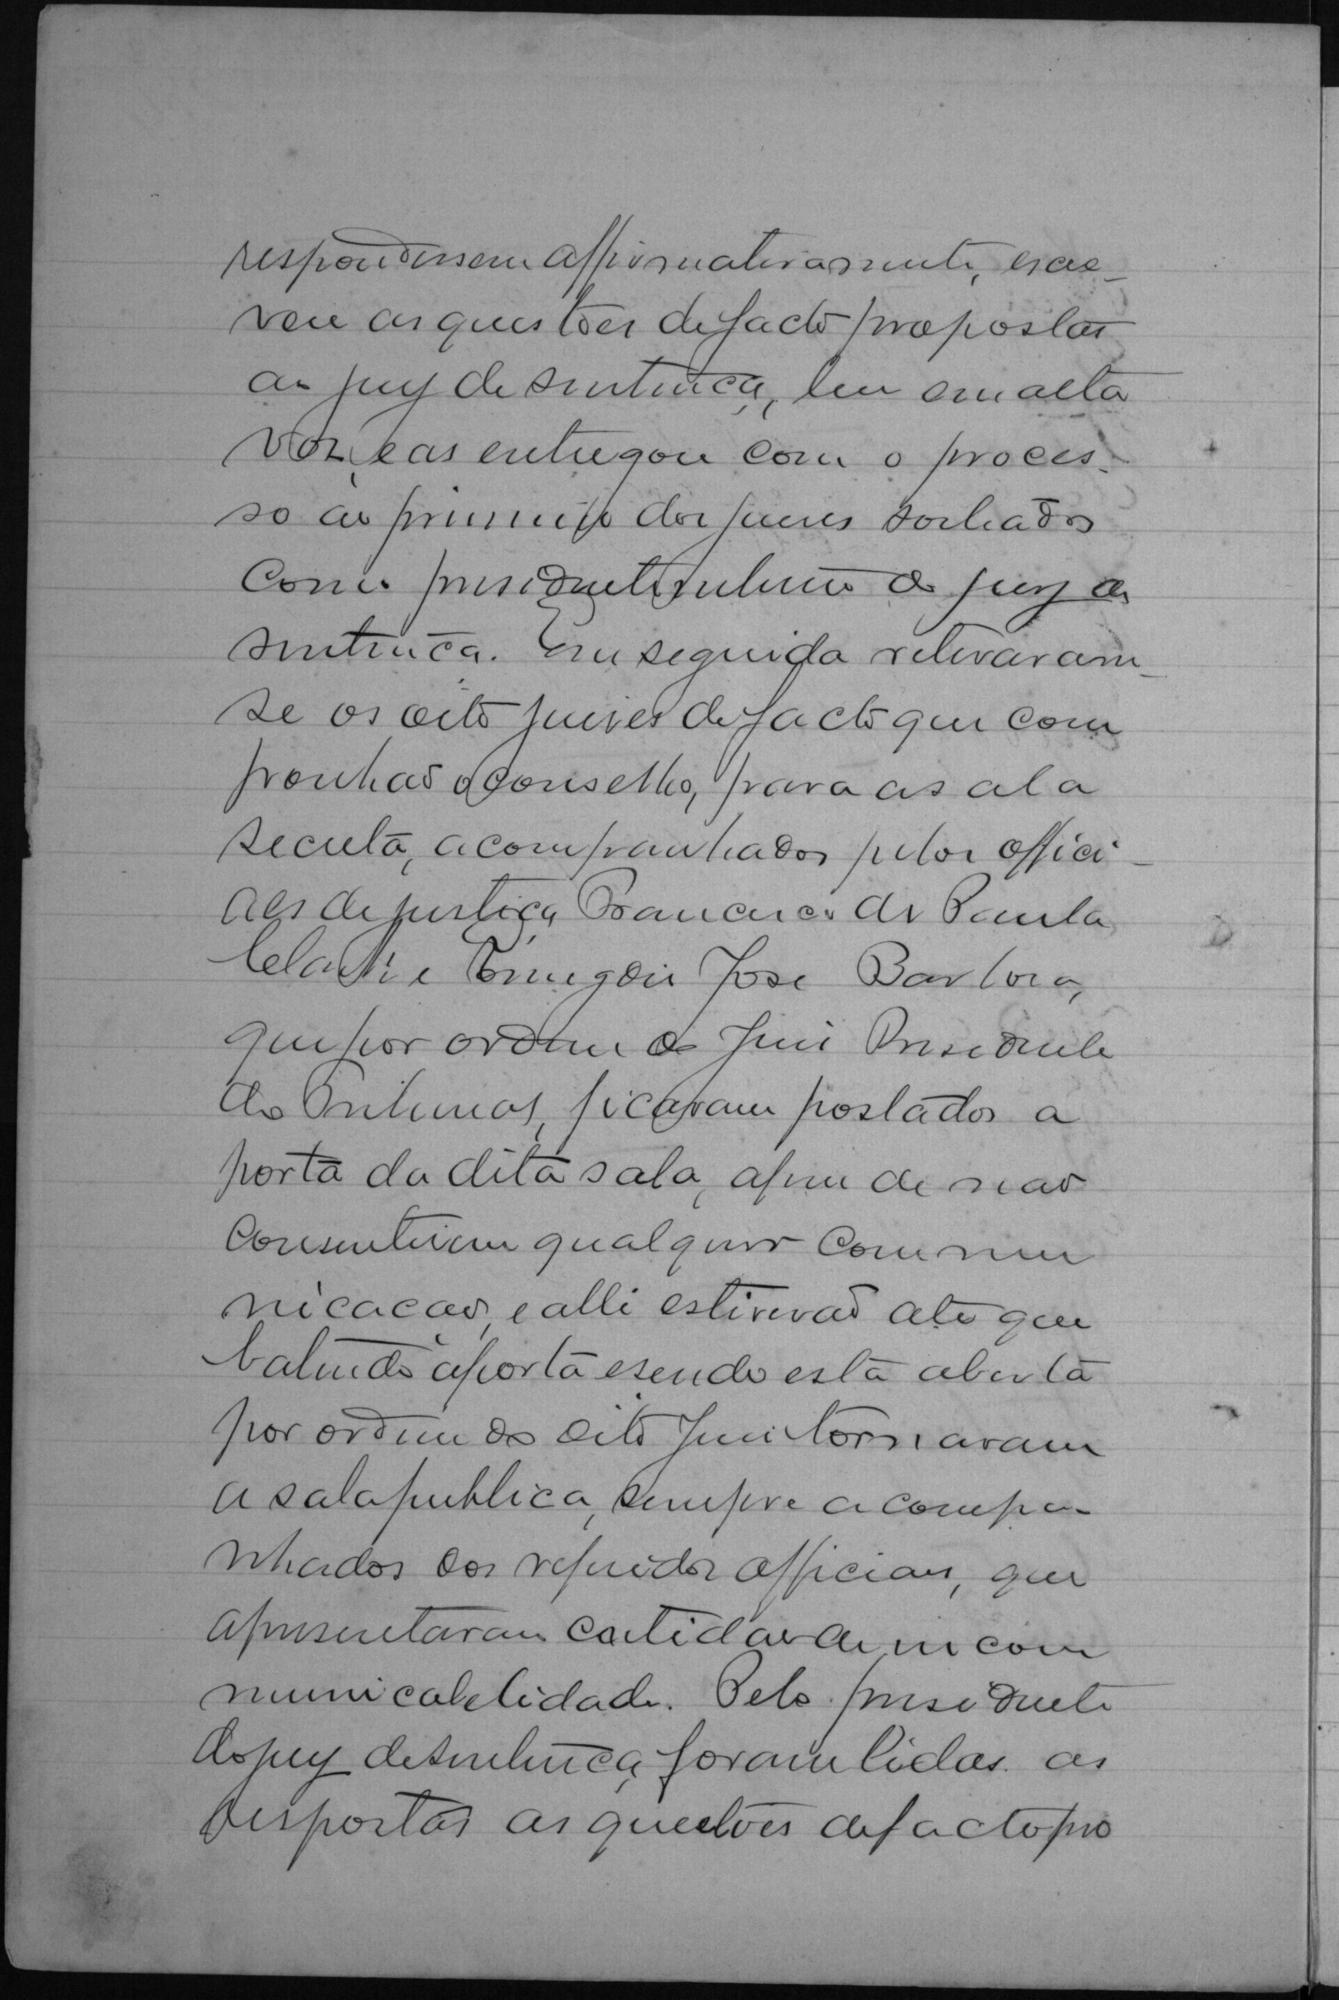 responderem affirmativamente, escre-
veu as questões de facto propostas
ao jury de sentença, leu em alta
voz, e as entregou com o proces-
so ao primeiro dos juizes sorteados
como presidente interino do jury de
sentença. Em seguida retiraram-
se os oito juizes de facto que com
punhaõ o conselho, para a sala
secreta, acompanhados pelos offici-
aes de justiça Francisco de Paula
e José Barbosa,
que por ordem do Juiz Presidente
do Tribunal, ficaram postados a
porta da dita sala, afim de não
consentirem qualquer commu
nicacão, e alli estiveraõ até que
batendo á porta e sendo esta aberta
por ordem do dito Juiz tornaram
a sala publica, sempre acompa-
nhados dos referidos officiaes, que
apresentaram certidão de incom
municabelidade. Pelo presidente
do jury de sentença foram lidas as
respostas as questões de facto pro